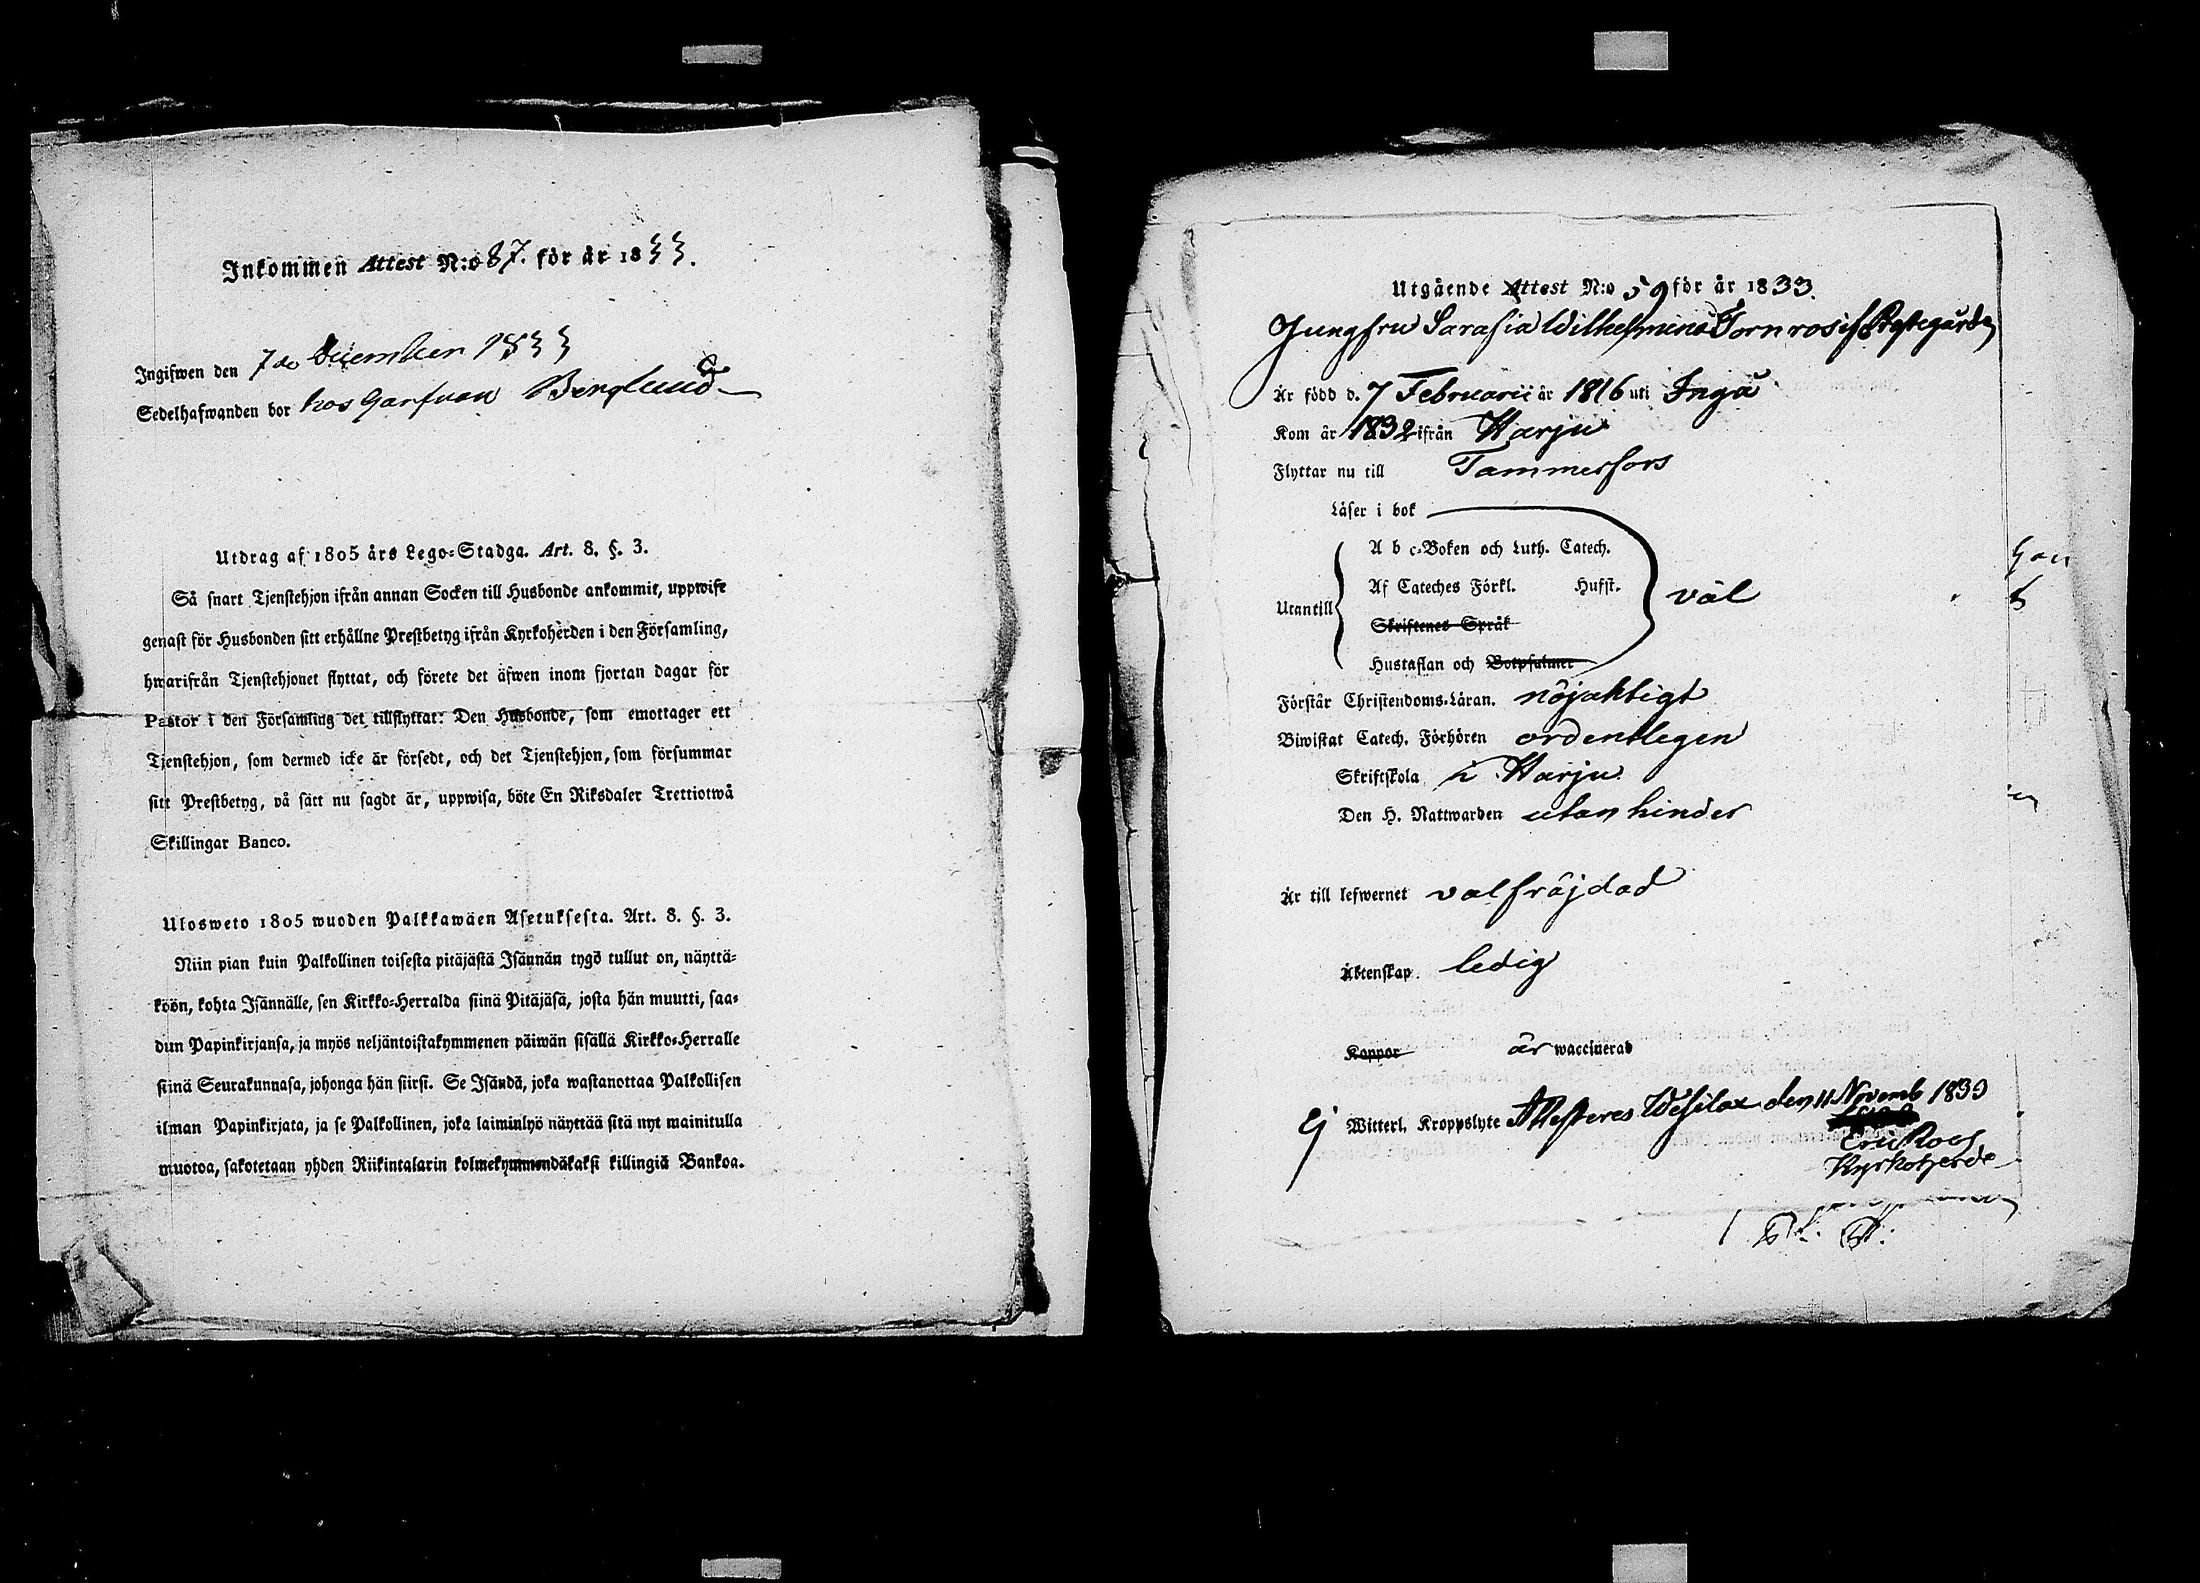 Inkommen Attest N:o 87. för år 1833.
Ingifwen den 7de December 1833
Sedelhafwanden bor hos Garfvan Berglund
Utdrag af 1805 års Lego-Stadga. Art. 8. §. 3.
Så snart Tjenstehjon ifrån annan Socken till Husbonde ankommit, uppwise
genast för Husbonden sitt erhållne Prestbetyg ifrån Kyrkoherden i den Församling,
hwarifrån Tjenstehjonet flyttat, och förete det äfwen inom fjortan dagar för
Pastor i den Församling det tillflyttat: Den Husbonde, som emottager ett
Tjenstehjon, som dermed icke är försedt, och det Tjenstehjon, som försummar
sitt Prestbetyg, på sätt nu sagdt är, uppwisa, böte En Riksdaler Trettiotwå
Skillingar Banco.
Ulosweto 1805 wuoden Palkkawäen Asetuksesta. Art. 8. §. 3.
Niin pian kuin Palkollinen toisesta pitäjästä Isännän tygö tullut on, näyttä-
köön, kohta Isännälle, sen Kirkko-Herralda siinä Pitäjäsä, josta hän muutti, saa-
dun Papinkirjansa, ja myös neljäntoistakymmenen päiwän sisällä Kirkko-Herralle
siinä Seurakunnasa, johonga hän siirsi. Se Isändä, joka wastanottaa Palkollisen
ilman Papinkirjata, ja se Palkollinen, joka laiminlyö näyttää sitä nyt mainitulla
muotoa, sakotetaan yhden Riikintalarin kolmekymmendäkaksi killingiä Bankoa.
Utgående Attest N:o 59 för år 1833.
Jungfru Sarafia Wilhelmina Tornros if Prästegården
Är född d. 7 Februarii år 1816 uti Ingå
Kom år 1832 ifrån Harju
Flyttar nu till Tammerfors
Läser i bok
A b c-Boken och Luth. Catech.
Af Cateches Förkl. Husst.
Utantill väl
Skriftenes Språk
Hustaflan och Botpsalmer
Förstår Christendoms-Läran. nöjaktigt
Biwistat Catech. Förhören ordentlegen
Skriftskola i Harju
Den H. Nattwarden utan hinder
Är till lefwernet valfräjdad
Äktenskap ledig
Koppor är waccinerad
Ej Witterl. Kroppslyte Attesteres Wesilax den 11 Novemb 1833
Eric Roos
Kyrkoherde